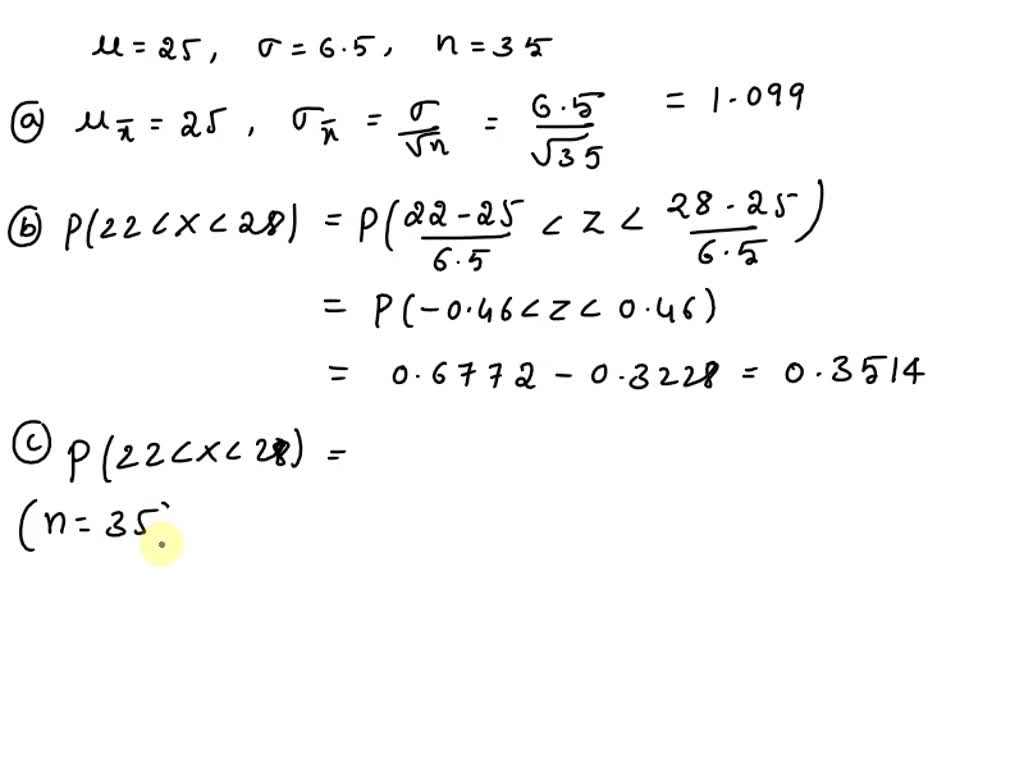 μ = 25, σ = 6.5, n = 35
ⓐ μ_x̄ = 25, σ_x̄ = σ/√n = 6.5/√35 = 1.099
ⓑ P(22 < X < 28) = P(22 - 25/6.5 < Z < 28 - 25/6.5)
= P(-0.46 < Z < 0.46)
= 0.6772 - 0.3228 = 0.3514
ⓒ P(22 < X < 28) =
(n = 35)